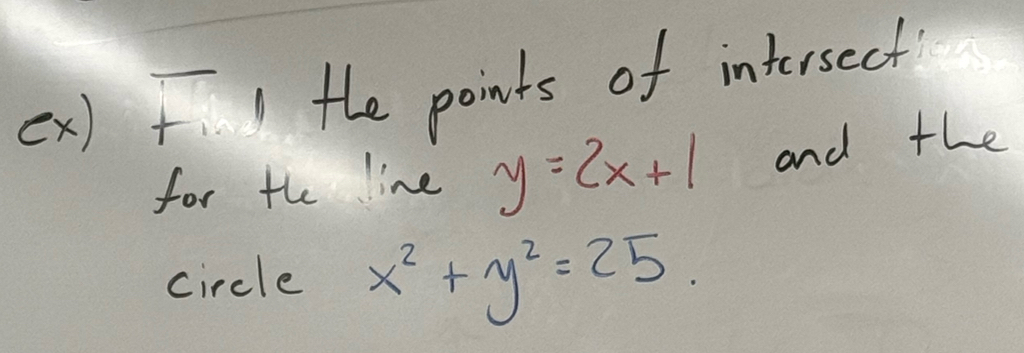 ex) Find the points of intersection
for the line y=2x+1 and the
circle x² + y² = 25.